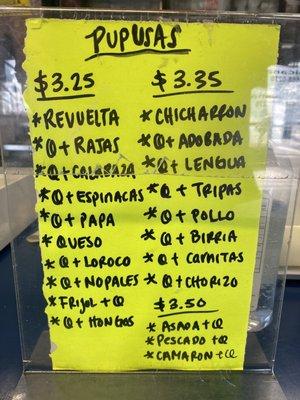 PUPUSAS
$3.25
* REVUELTA
* Q + RAJAS
* Q + CALABAZA
* Q + ESPINACAS
* Q + PAPA
* QUESO
* Q + LOROCO
* Q + NOPALES
* FRIJOL + Q
* Q + HONGOS
$3.35
* CHICHARRON
* Q + ADOBADA
* Q + LENGUA
* Q + TRIPAS
* Q + POLLO
* Q + BIRRIA
* Q + CARNITAS
* Q + CHORIZO
$3.50
* ASADA + Q
* PESCADO + Q
* CAMARON + Q